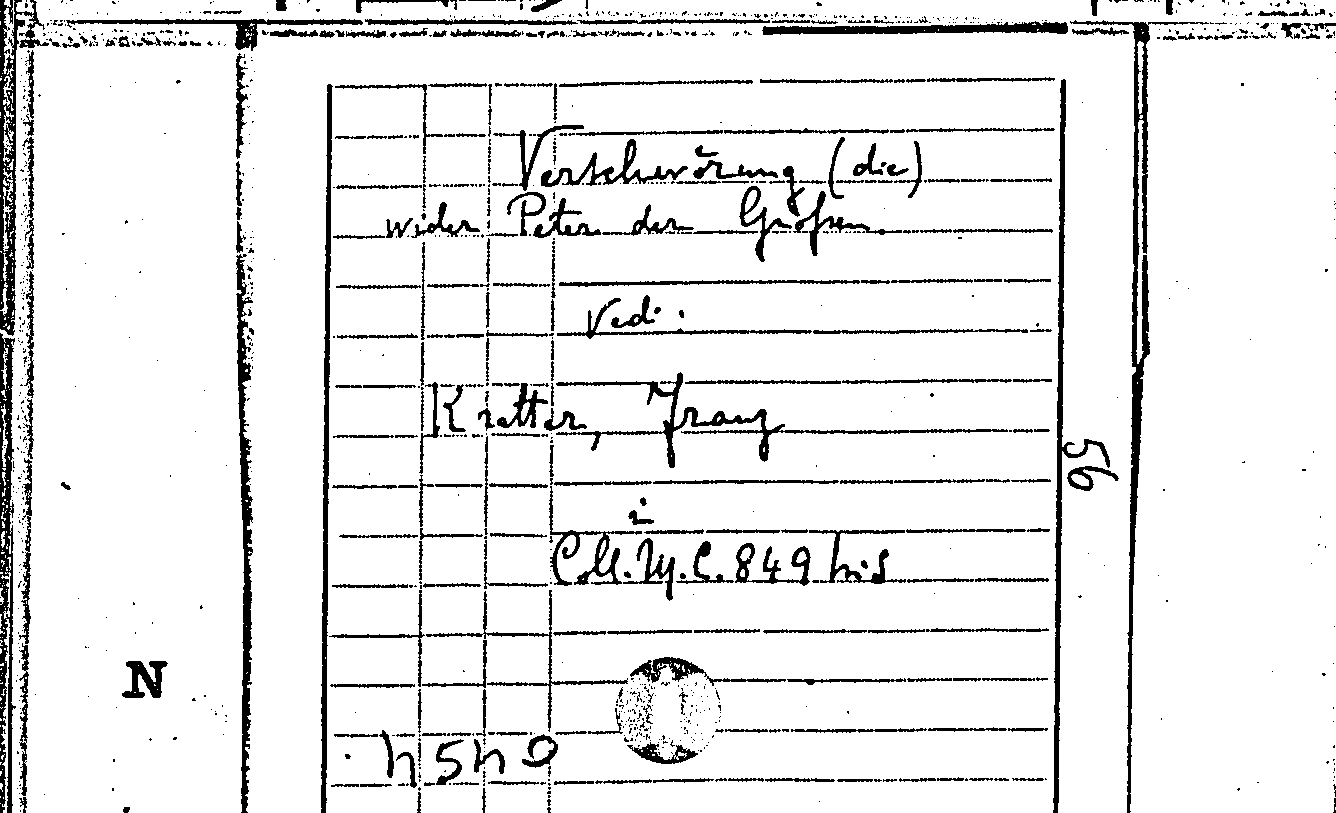 Verschwörung (die)
wider Peter den Großen.
Vedi:
Kratter, Franz
i
Coll. M. C. 849 bis
56
N